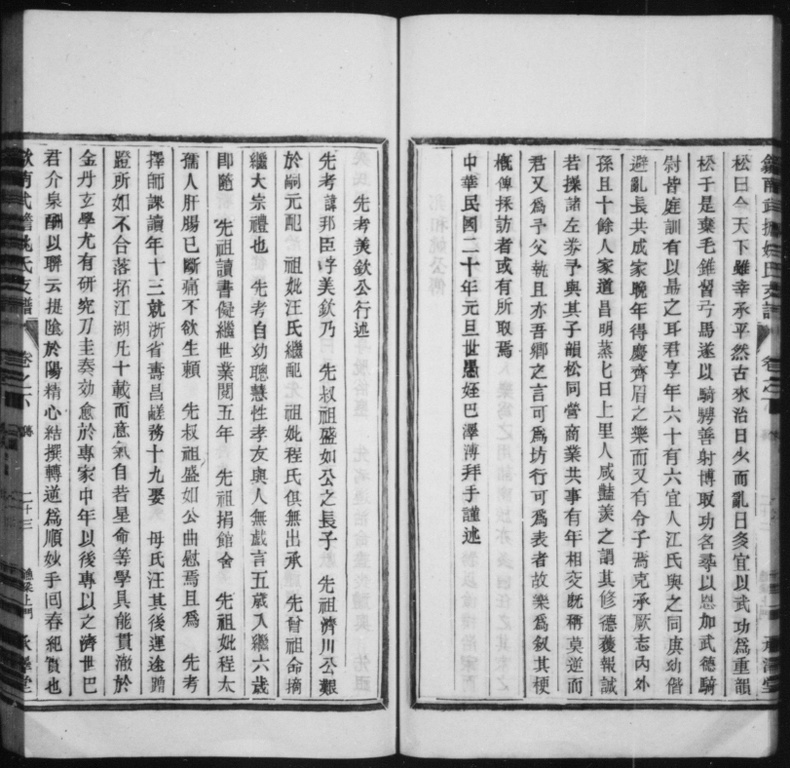 歙南武擔姚氏支譜
卷之下
承澤堂
松曰今天下雖幸承平然古來治日少而亂日多宜以武功爲重韻
松于是棄毛錐習弓馬遂以騎騁善射博取功名尋以恩加武德騎
尉皆庭訓有以勗之耳君享年六十有六宜人江氏與之同庚幼偕
避亂長共成家晚年得慶齊眉之樂而又有令子焉克承厥志內外
孫且十餘人家道昌明蒸蒸日上里人咸豔羨之謂其修德獲報誠
若操諸左券予與其子韻松同營商業共事有年相交旣稱莫逆而
君又爲予父執且亦吾鄉之言可爲坊行可爲表者故樂爲叙其梗
槪俾採訪者或有所取焉
中華民國二十年元旦世愚姪巴澤溥拜手謹述
先考美欽公行述
先考諱邦臣字美欽乃 先叔祖盛如公之長子 先祖濟川公艱
於嗣元配 祖妣汪氏繼配 祖妣程氏俱無出承 先曾祖命摘
繼大宗禮也 先考自幼聰慧性孝友與人無戲言五歲入繼六歲
卽隨 先祖讀書儗繼世業閱五年 先祖捐館舍 先祖妣程太
孺人肝腸已斷痛不欲生賴 先叔祖盛如公曲慰焉且爲 先考
擇師課讀年十三就浙省壽昌鹺務十九娶 母氏汪其後運途蹭
蹬所如不合落拓江湖凡十載而意氣自若星命等學具能貫澈於
金丹玄學尤有研究刀圭奏効愈於專家中年以後專以之濟世巴
君介泉酬以聯云提陰於陽精心結撰轉逆爲順妙手回春紀實也
歙南武擔姚氏支譜
卷之下
傳
二十三
承澤堂